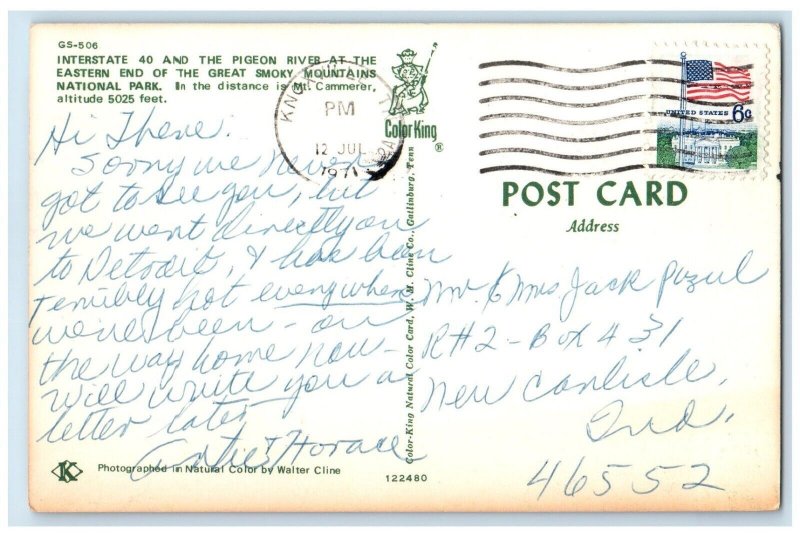 GS-506
INTERSTATE 40 AND THE PIGEON RIVER AT THE
EASTERN END OF THE GREAT SMOKY MOUNTAINS
NATIONAL PARK. In the distance is Mt. Cammerer,
altitude 5025 feet.
Hi There:
Sorry we never
got to see you, but
we went directly on
to Detroit, & has been
terribly hot everywhere
we've been - on
the way home now -
will write you a
letter later
& Horace
Photographed in Natural Color by Walter Cline
K
Color King
®
Color-King Natural Color Card, W. M. Cline Co., Gatlinburg, Tenn
122480
PM
12 JUL
1971
UNITED STATES 6c
POST CARD
Address
Mr. & Mrs Jack
R#2 - Box 431
New Carlisle,
Ind.
46552